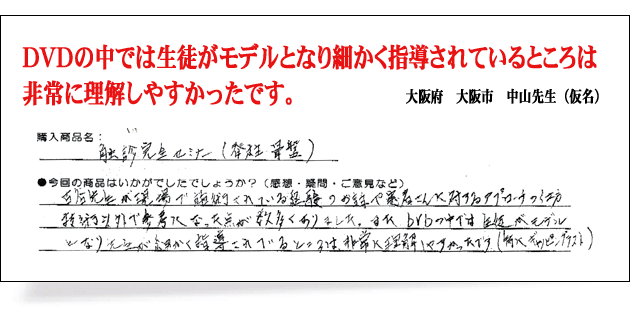 DVDの中では生徒がモデルとなり細かく指導されているところは
非常に理解しやすかったです。
大阪府 大阪市 中山先生（仮名）
購入商品名：
触診完全セミナー（脊柱骨盤）
●今回の商品はいかがでしたでしょうか？（感想・疑問・ご意見など）
先生が現場で施術されている経験のお話や患者さんに対するアプローチの仕方
技術以外で参考になった点が数多くありました。またDVDの中では生徒がモデル
となり先生が細かく指導されているところは非常に理解しやすかったです